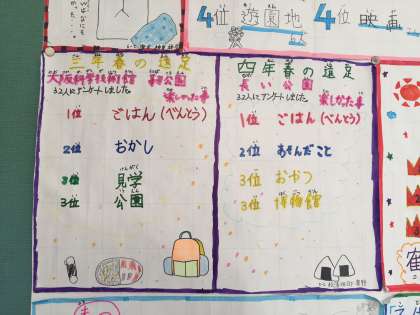 4位 遊園地
4位 映画
三年春の遠足
大阪科学技術館
公園
32人にアンケートしました。
楽しかった事
1位 ごはん(べんとう)
2位 おかし
3位 見学
けんがく
3位 公園
四年春の遠足
長い公園
32人にアンケートしました。
楽しかった事
1位 ごはん(べんとう)
2位 あそんだこと
3位 おやつ
3位 博物館